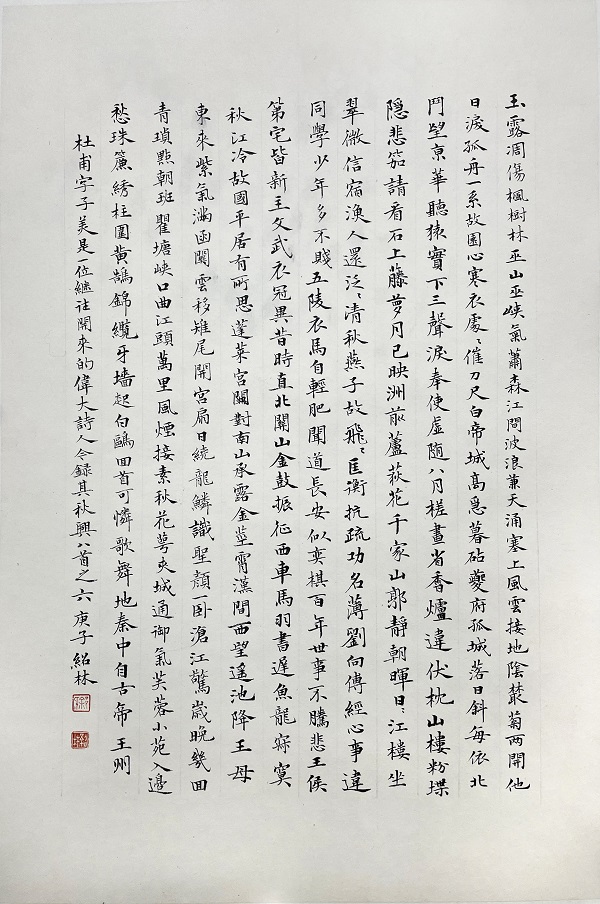 玉露凋傷楓樹林巫山巫峽氣蕭森江間波浪兼天涌塞上風雲接地陰叢菊兩開他
日淚孤舟一系故園心寒衣處〻催刀尺白帝城高急暮砧夔府孤城落日斜每依北
鬥望京華聽猿實下三聲淚奉使虛隨八月槎畫省香爐違伏枕山樓粉堞
隱悲笳請看石上藤萝月已映洲前蘆荻花千家山郭靜朝暉日〻江樓坐
翠微信宿漁人還泛〻清秋燕子故飛〻匡衡抗疏功名薄劉向傳經心事違
同學少年多不賤五陵衣馬自輕肥聞道長安似奕棋百年世事不騰悲王侯
第宅皆新王文武衣冠異昔時直北關山金鼓振征西車馬羽書遲魚龍寂寞
秋江冷故國平居有所思蓬萊宮闕對南山承露金莖霄漢間西望遙池降王母
東來紫氣滿函關雲移雉尾開宮扇日繞龍鱗識聖顏一臥滄江驚歲晚幾回
青瑣點朝班瞿塘峽口曲江頭萬里風煙接素秋花萼夾城通御氣芙蓉小苑入邊
愁珠簾綉柱圍黃鵠錦纜牙墻起白鷗回首可憐歌舞地秦中自古帝王州
杜甫字子美是一位繼往開來的偉大詩人今録其秋興八首之六庚子紹林